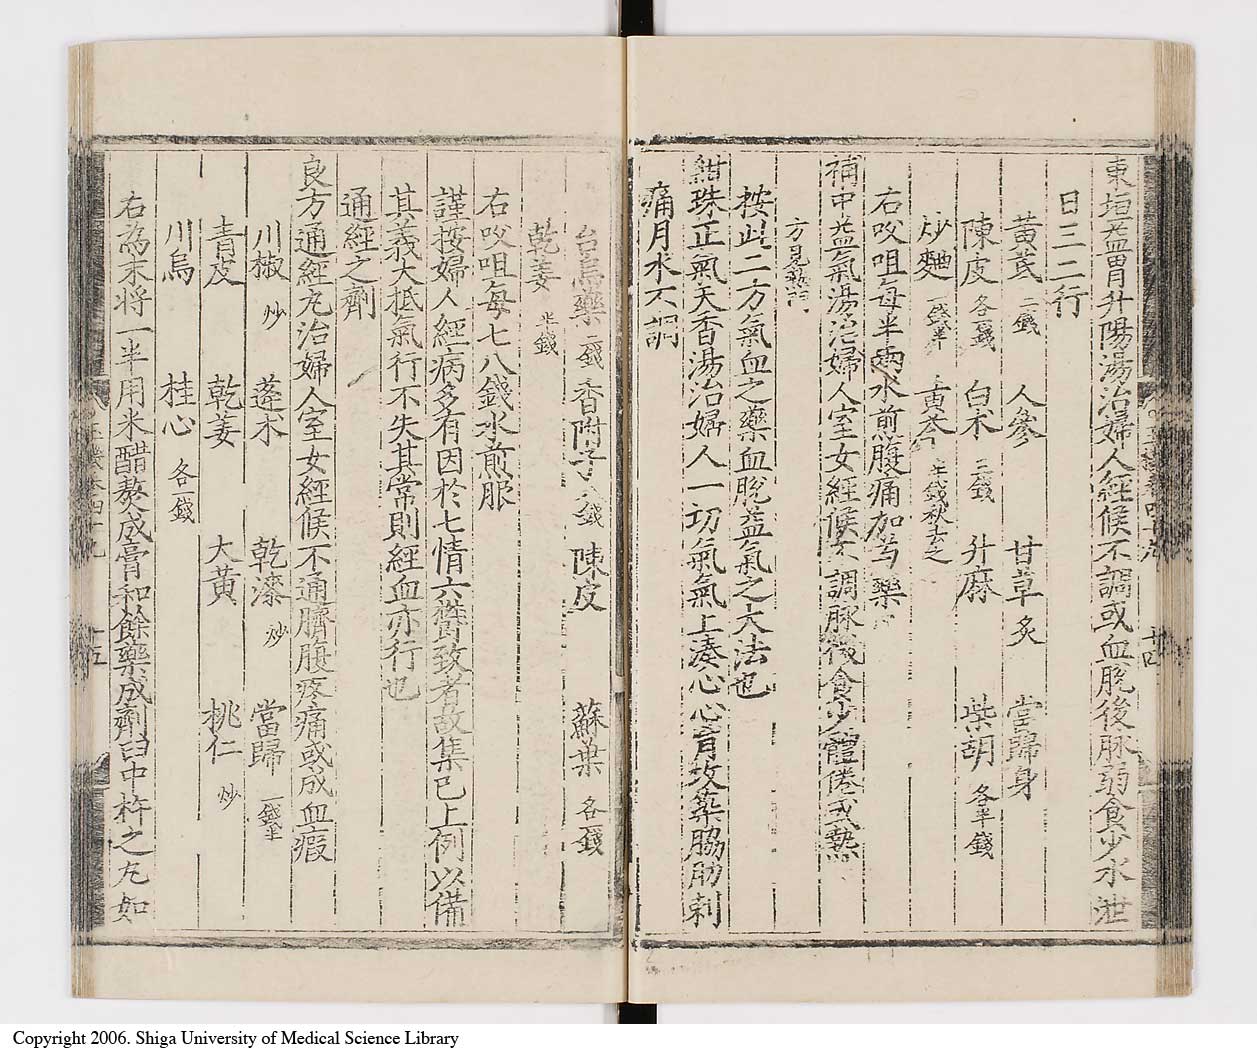 東垣益胃升陽湯治婦人經候不調或血脫後脉弱食少水泄
日三二行
黃芪 二錢 人參 甘草 炙 當歸身
陳皮 各一錢 白朮 三錢 升麻 柴胡 各半錢
炒麯 一錢半 黃芩 半錢秋去之
右㕮咀每半兩水煎腹痛加芍藥
補中益氣湯治婦人室女經候不調脉微食少體倦或熱
方見
按此二方氣血之藥血脫益氣之大法也
紺珠正氣天香湯治婦人一切氣氣上湊心心胷攻築脇肋刺
痛月水不調
台烏藥 二錢 香附子 八錢 陳皮 蘇葉 各一錢
乾姜 半錢
右㕮咀每七八錢水煎服
謹按婦人經病多有因於七情六欝致者故集已上例以備
其義大抵氣行不失其常則經血亦行也
通經之劑
良方通經丸治婦人室女經候不通臍腹疼痛或成血瘕
川椒 炒 蓬朮 乾漆 炒 當歸
青皮 乾姜 大黃 桃仁 炒
川烏 桂心 各一錢
右為末將一半用米醋熬成膏和餘藥成劑臼中杵之丸如
十四
十五
Copyright 2006. Shiga University of Medical Science Library